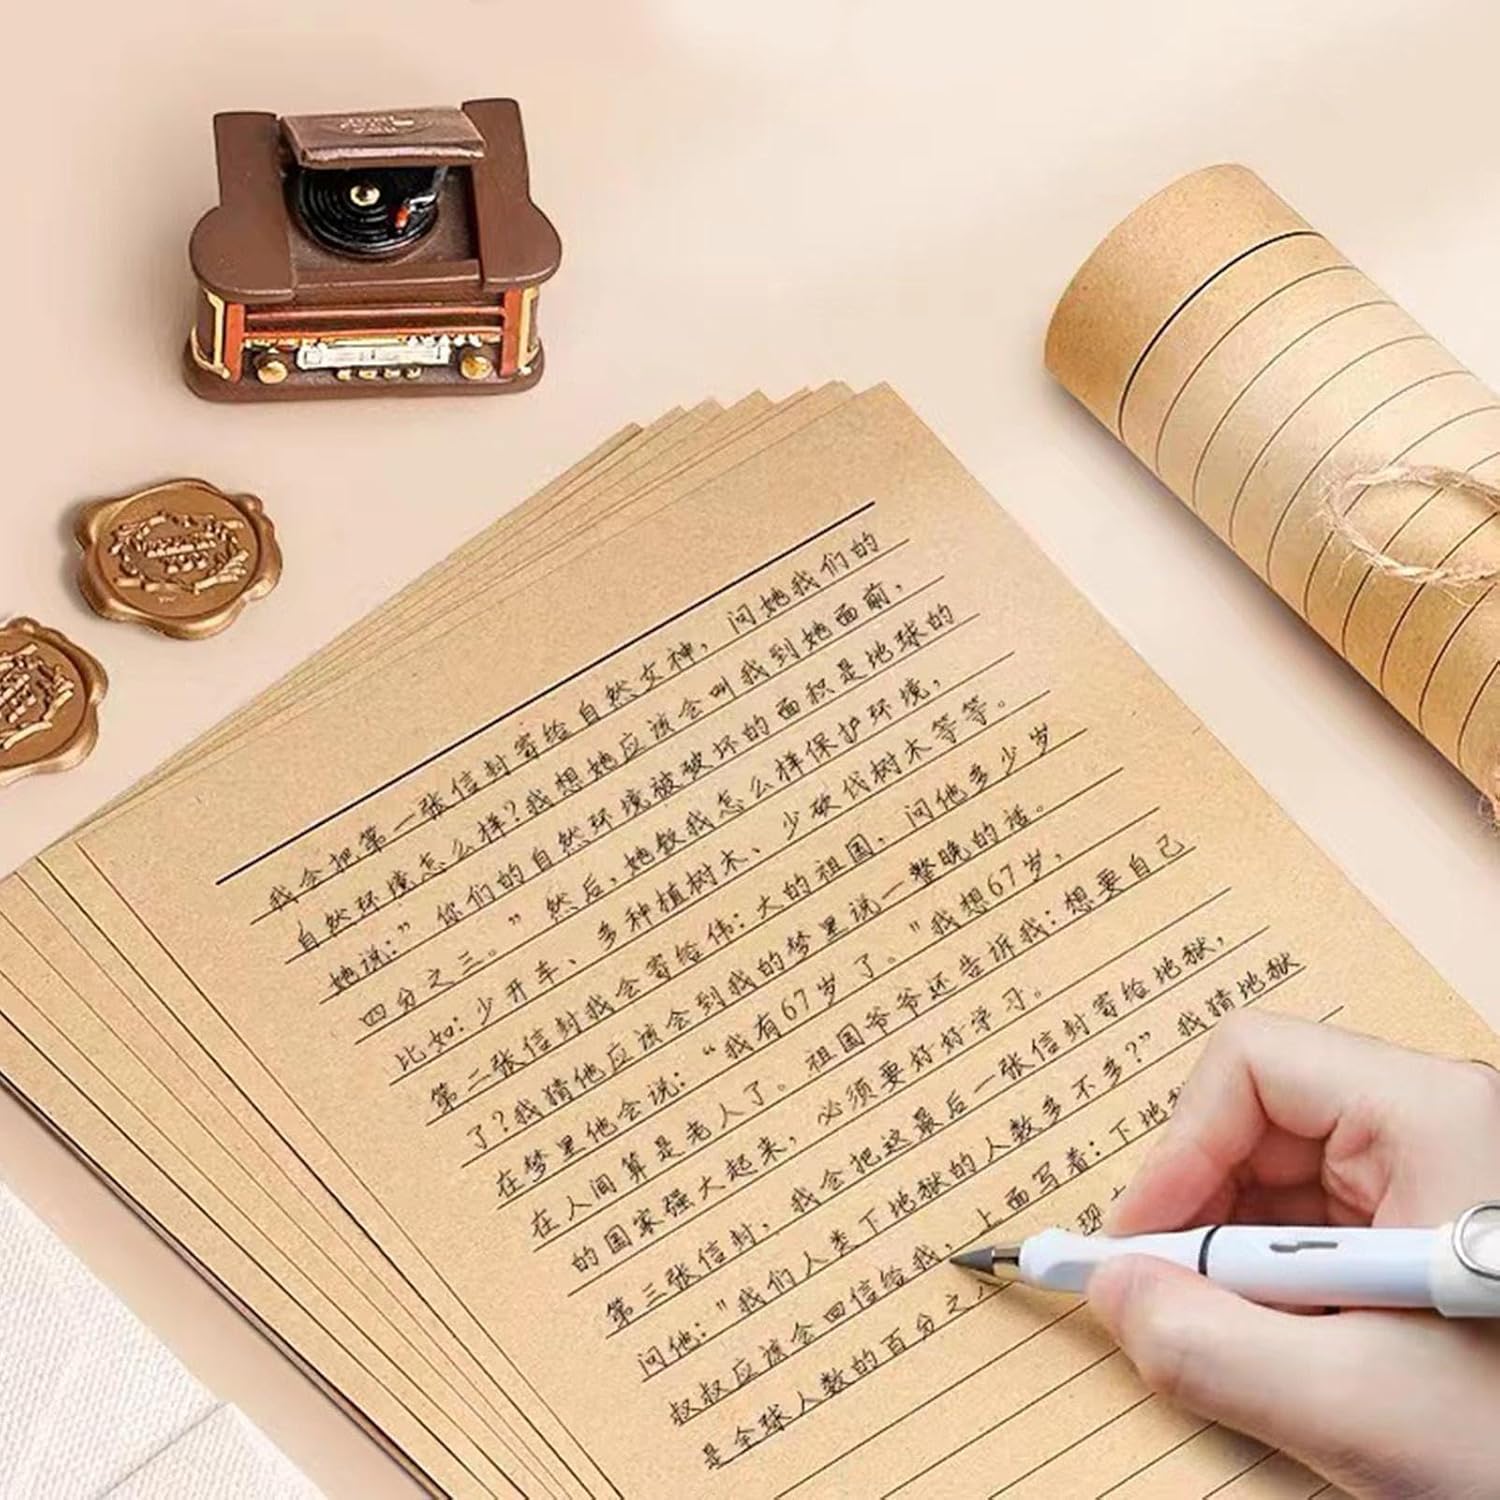 我会把第一张信封寄给自然女神，问她我们的
自然环境怎么样?我想她应该会叫我到她面前，
她说:”你们的自然环境被破坏的面积是地球的
四分之三。”然后,她教我怎么样保护环境，
比如:少开车、多种植树木、少砍伐树木等等。
第二张信封我会寄给伟:大的祖国，问他多少岁
了?我猜他应该会到我的梦里说一整晚的话。
在梦里他会说:“我有67岁了。"我想67岁，
在人间算是老人了。祖国爷爷还告诉我:想要自己
的国家强大起来，必须要好好学习。
第三张信封，我会把这最后一张信封寄给地狱，
问他:"我们人类下地狱的人数多不多?”我猜地狱
叔叔应该会回信给我，上面写着:下地
是全球人数的百分之 现